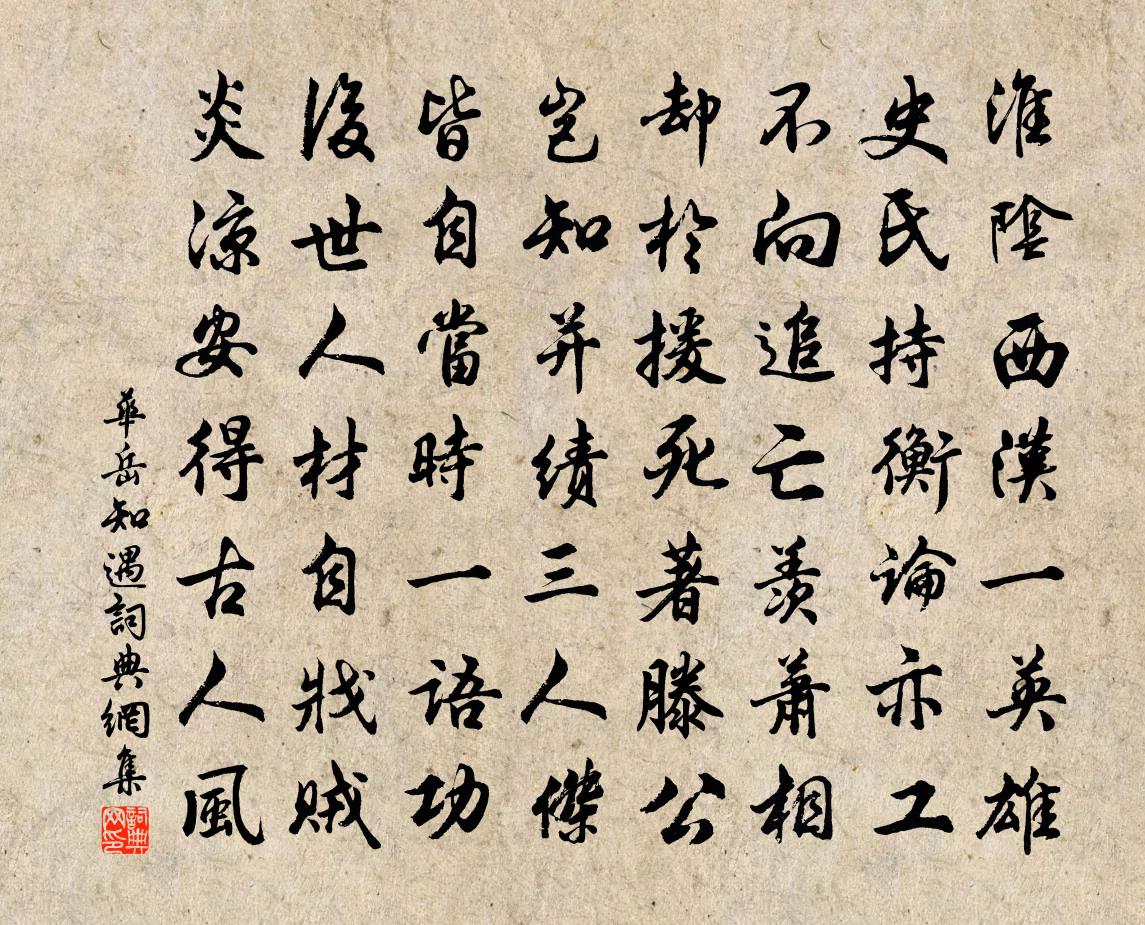 淮陰西漢一英雄
史氏持衡論亦工
不向追亡羨蕭相
却於援死著滕公
豈知并績三人傑
皆自當時一語功
後世人材自戕賊
炎涼安得古人風
華岳知遇詞典網集
詞典網印